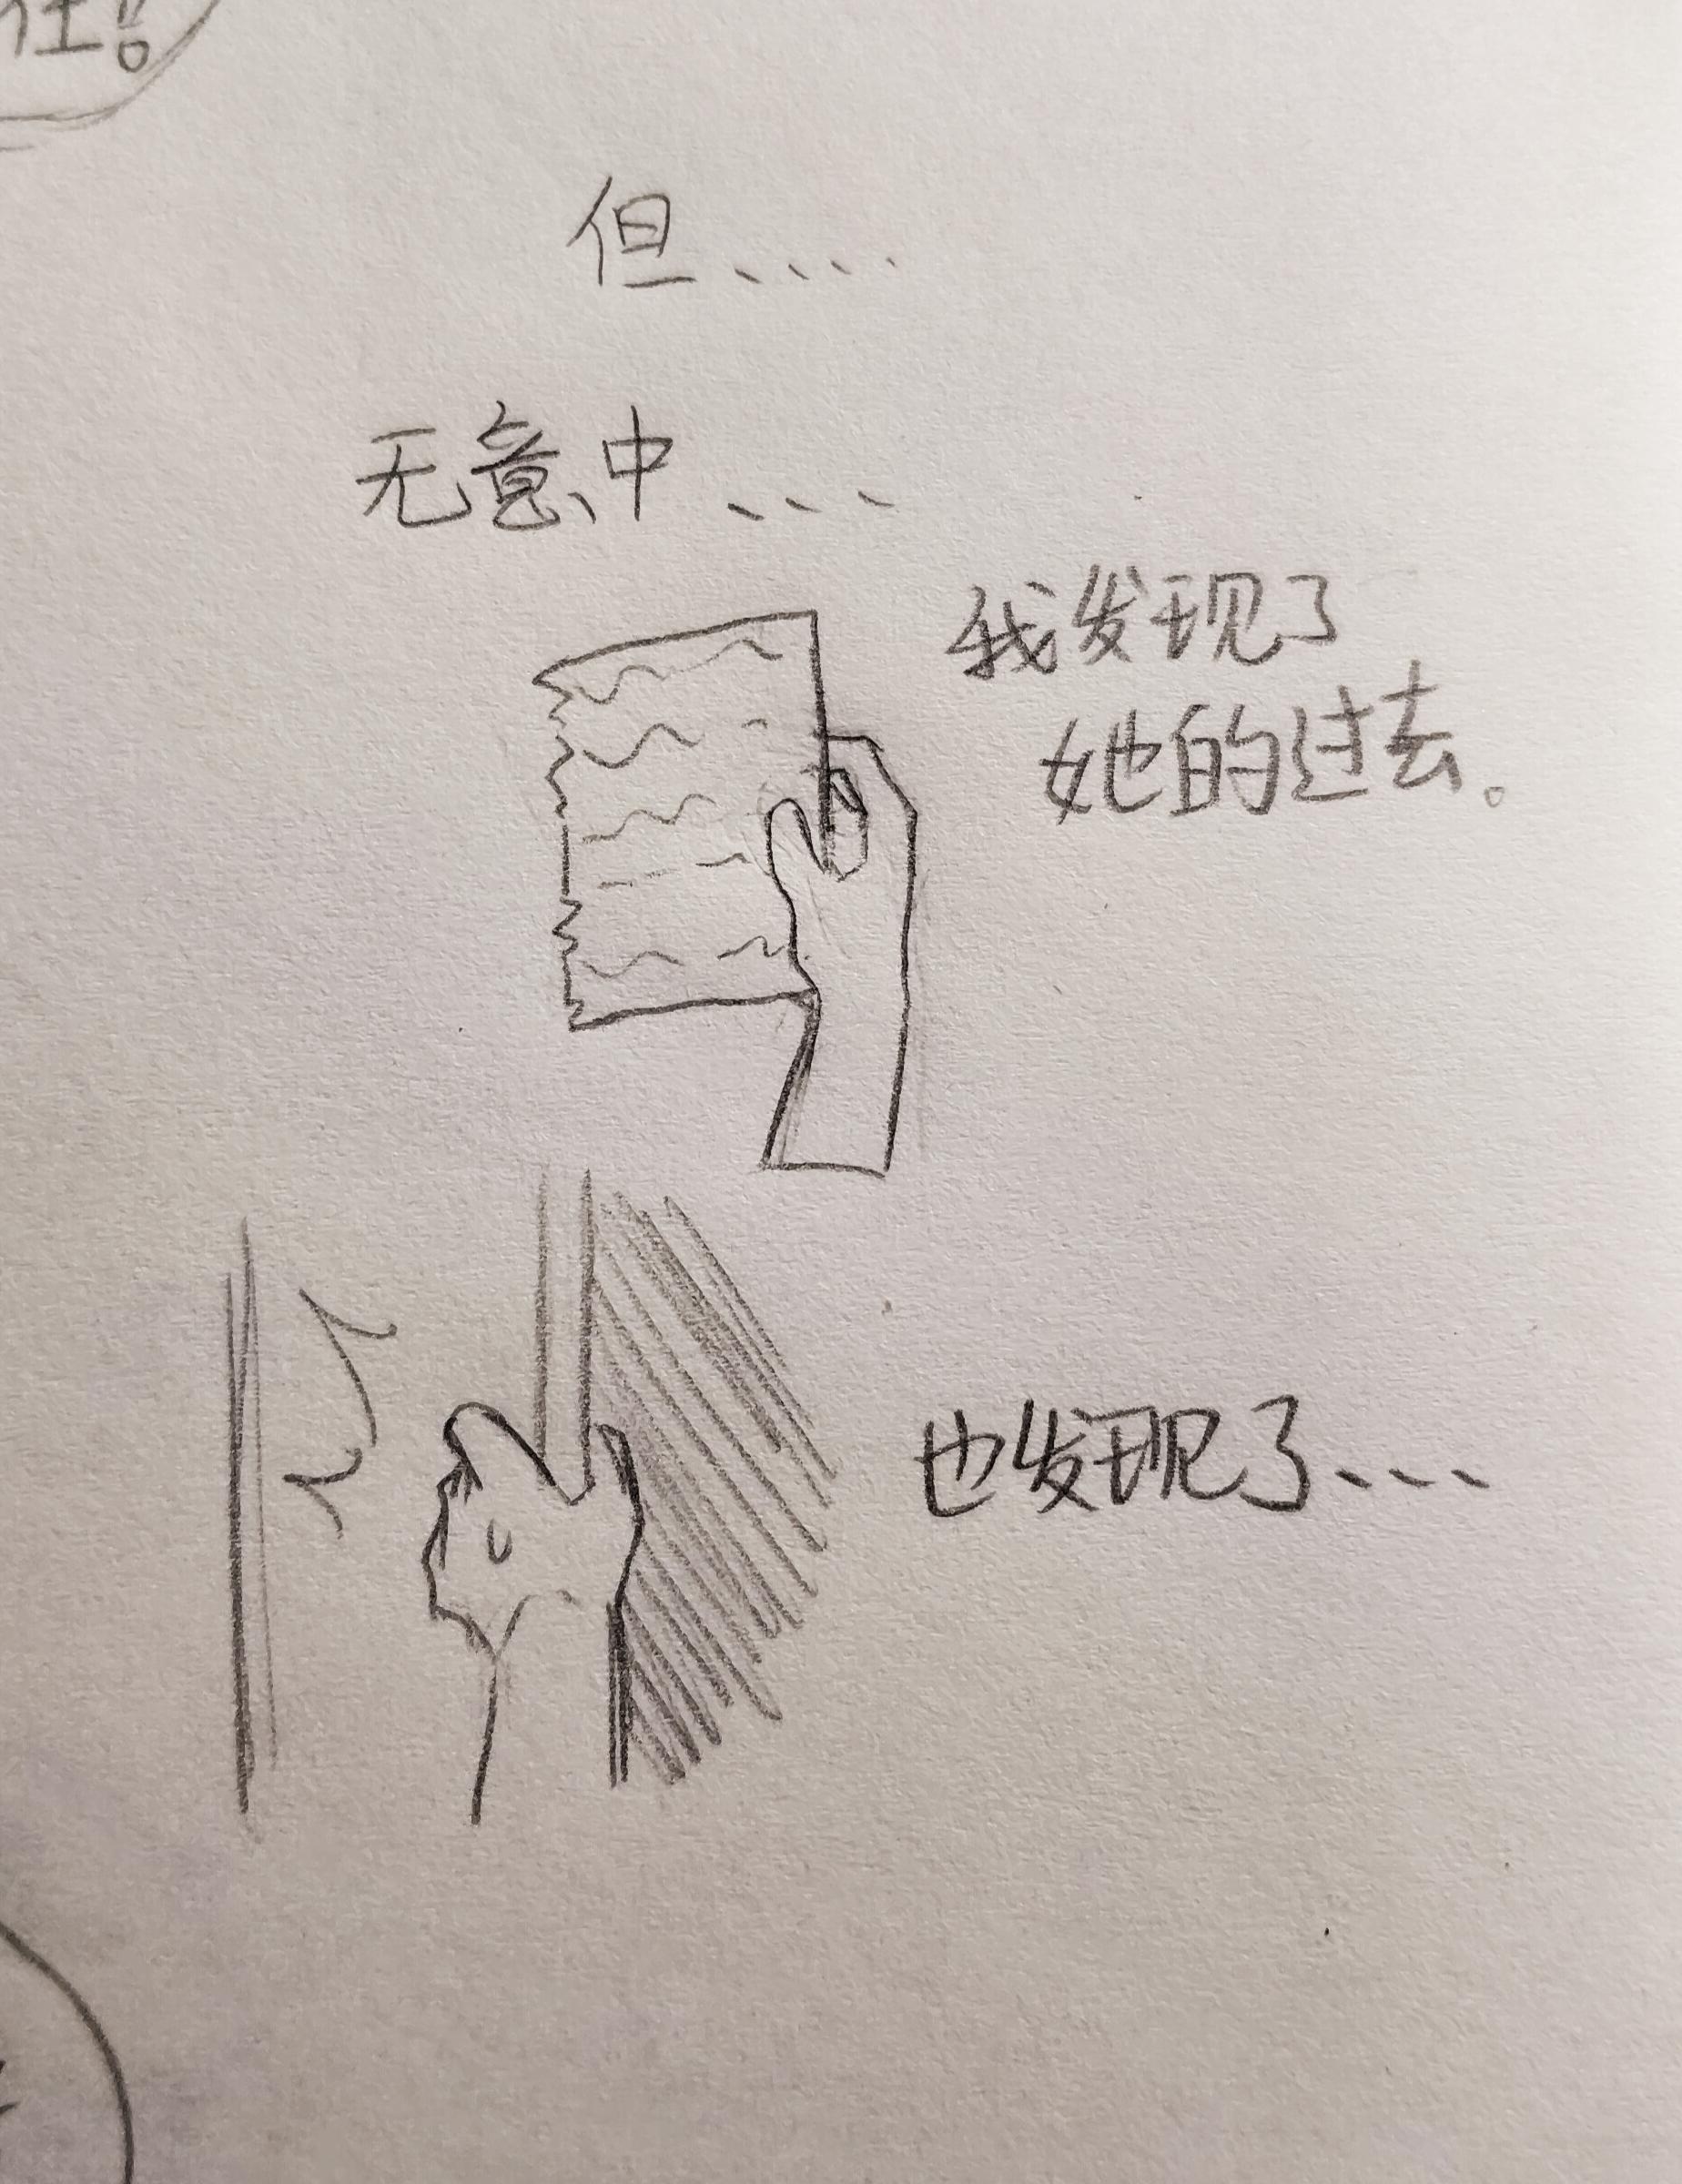 住!!
但....
无意中...
我发现了
她的过去。
也发现了...